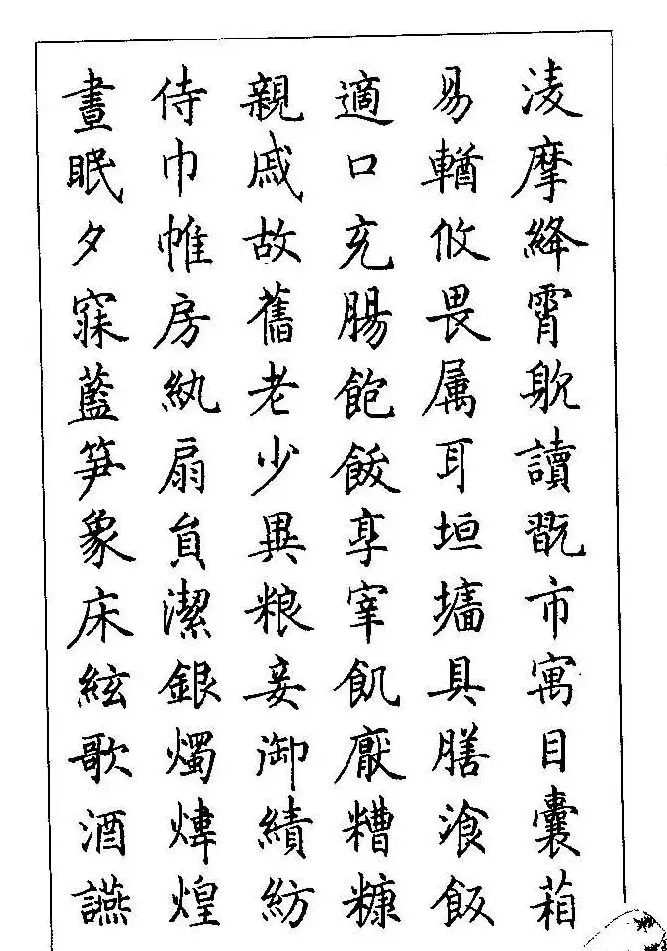 淩摩絳霄耽讀翫市寓目囊箱
易輶攸畏属耳垣墻具膳湌飯
適口充腸飽飫享宰飢厭糟糠
親戚故舊老少異粮妾御績紡
侍巾帷房紈扇員潔銀燭煒煌
晝眠夕寐藍笋象床絃歌酒讌